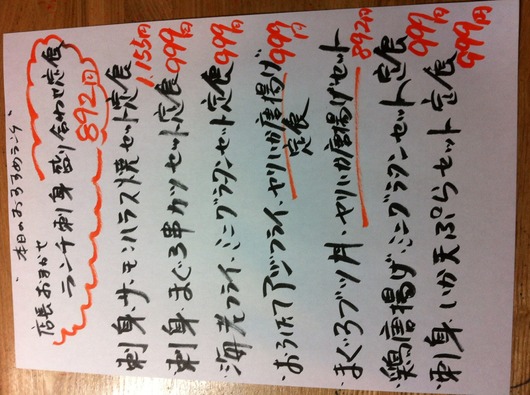 本日のおすすめランチ
店長おまかせ
ランチ刺身盛り合わせ定食
892円
刺身・サーモンハラス焼セット定食 1,155円
刺身・まぐろ串カツセット定食 999円
・海老フライ・ミニグラタンセット定食 999円
・おろしたてアジフライ・ヤリいか唐揚げ定食 999円
・まぐろブツ丼・ヤリいか唐揚げセット 892円
・鶏唐揚げ・ミニグラタンセット定食 999円
・刺身・いか天ぷらセット定食 999円